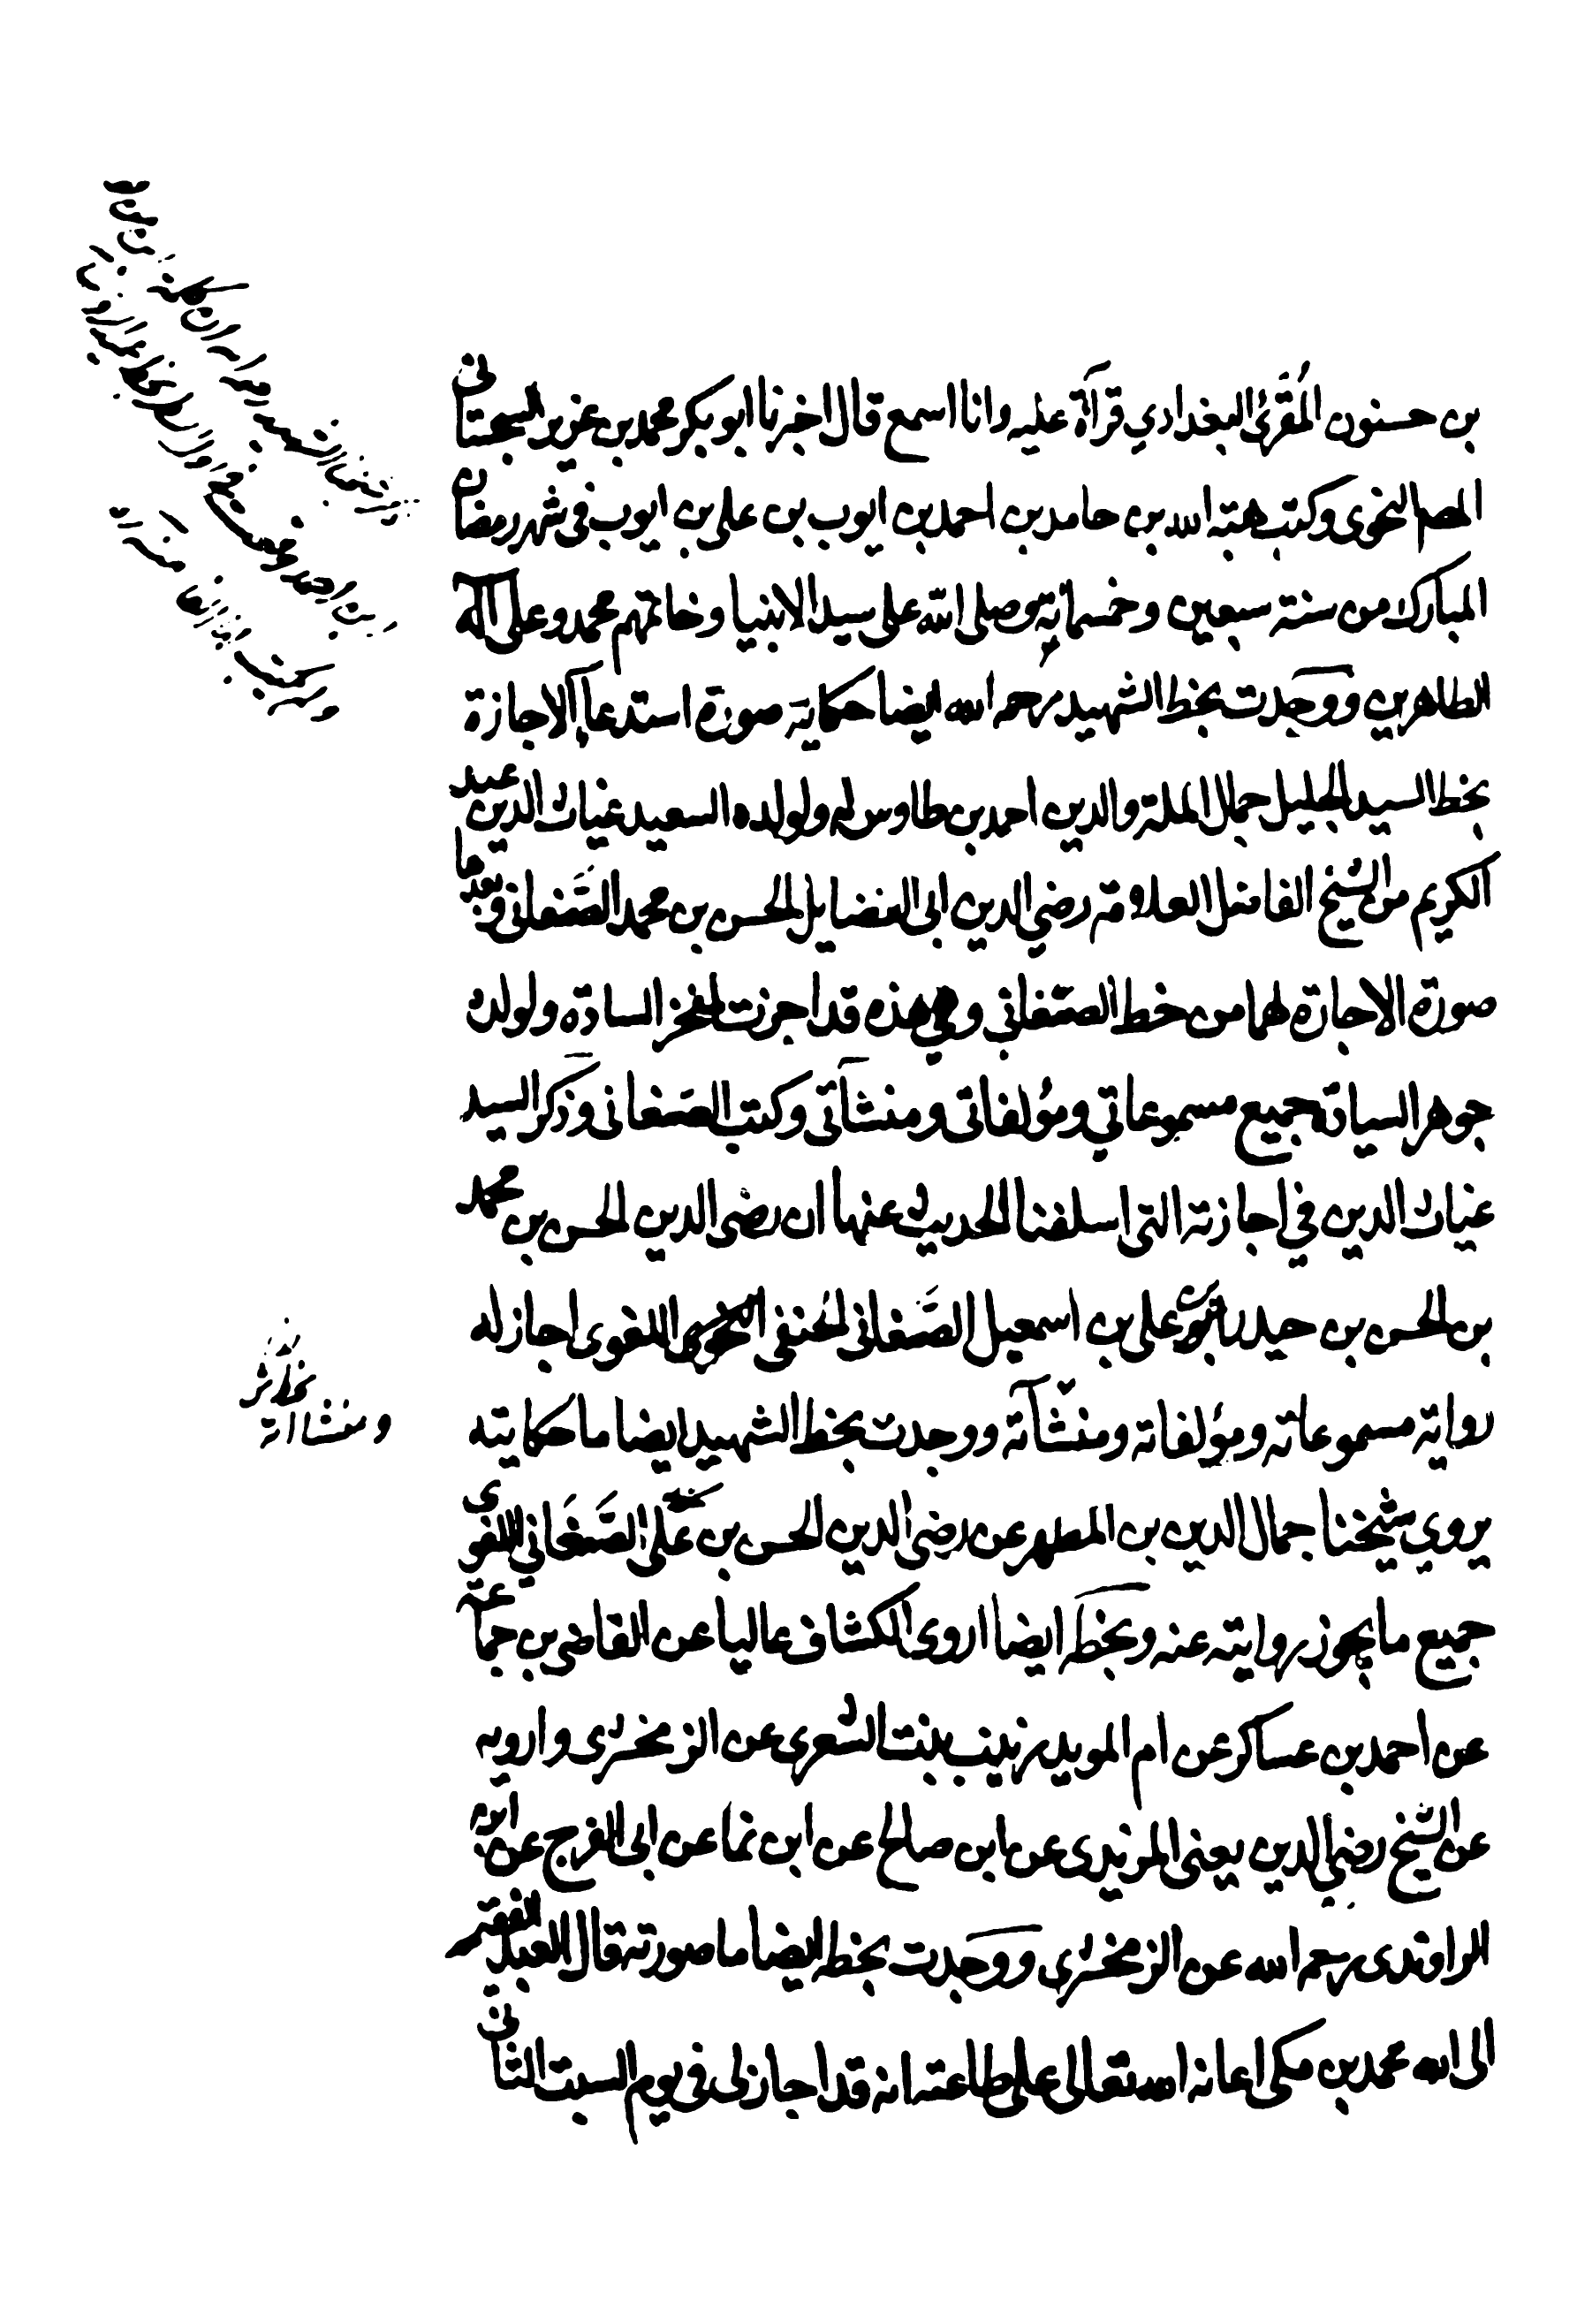 بن حسنون المُقرئ البغدادي قرآة عليه وانا اسمع قال اخبرنا ابو بكر محمد بن عزيز السجستاني
النحوى وكتب هبة الله بن حامد بن احمد بن ايوب بن على بن ايوب فى شهر رمضان
المبارك من سنة سبعين وخمسمائة وصلى الله على سيد الانبيا وخاتمهم محمد وعلى آله
الطاهرين ووجدت بخط الشهيد رحمه الله ايضا حكاية صورة استدعا الاجازة
بخط السيد الجليل جمال الملة والدين احمد بن طاوس له ولولده السعيد غياث الدين عبد
الكريم من الشيخ الفاضل العلامة رضي الدين ابى الفضايل الحسن بن محمد الصَّغانى وبعدها
صورة الاجازة لهما من خط الصغاني وهي هذه قد اجزت لفخر السادة ولولده
جوهر السيادة جميع مسموعاتي ومؤلفاتى ومنشآتى وكتب الصغانى وذكر السيد
غياث الدين في اجازته التى اسلفنا الحديث عنها ان رضى الدين الحسن بن محمد
بن الحسن بن حيدر بن على بن اسمعيل الصَّغانى الحنفى النحوى اللغوى اجاز له
رواية مسموعاته ومؤلفاته ومنشآته ووجدت بخط الشهيد ايضا ما حكايته
يروي شيخنا جمال الدين بن المطهر عن رضى الدين الحسن بن على الصَّغَاني اللغوى
جميع ما يجوز روايته عنه وبخطه ايضا اروى الكشاف عاليا عن القاضى بن جماعة
عن احمد بن عساكر عن ام المويد زينب بنت الشعرى عن الزمخشرى وارويه
عن الشيخ رضي الدين يعنى المزيدى عن ابن صالح عن ابن نما عن ابى الفرج عن ابيه
الراوندى رحمه الله عن الزمخشرى ووجدت بخطه ايضا ما صورته قال العبد الفقير
الى الله محمد بن مكى اعانه الله تعالى على طاعته انه قد اجاز لى فى يوم السبت الثانى
ومنشااته